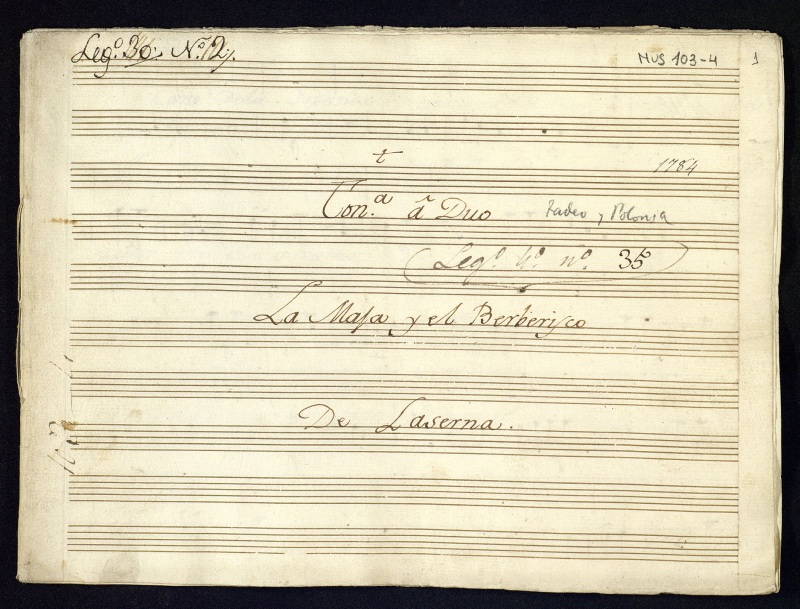 Leg.º 30. N.º 2. MUS 103-4 1
t
1784
Ton.ª â Duo Tadeo y Polonia
(Leg.º 4.º n.º 35)
La Maja y el Berberisco
De Laserna.